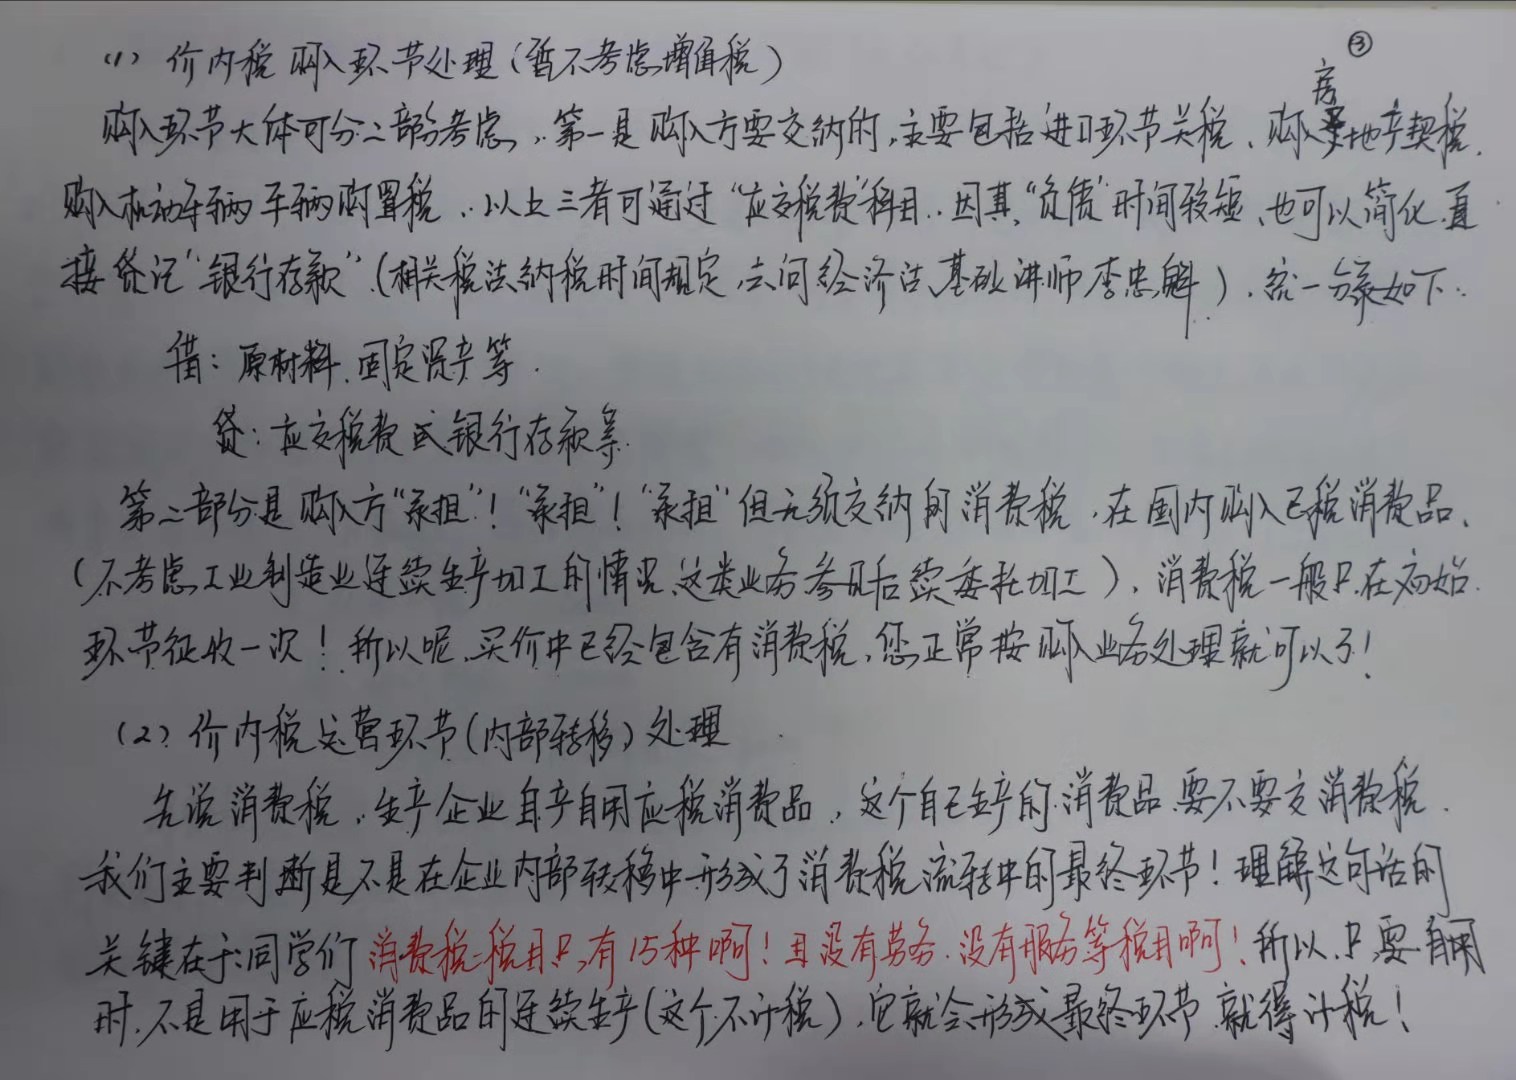 ③
(1) 价内税购入环节处理(暂不考虑增值税)
房
购入环节大体可分二部分考虑,第一是购入方要交纳的,主要包括进口环节关税、购入地产契税、
购入机动车辆车辆购置税,以上三者可通过“应交税费”科目,因其“负债”时间较短,也可以简化直
接贷记“银行存款”(相关税法纳税时间规定,去问经济法基础讲师李忠魁),统一分录如下:
借:原材料、固定资产等
贷:应交税费或银行存款等
第二部分是购入方“承担”!“承担”!“承担”但无须交纳的消费税,在国内购入已税消费品、
(不考虑工业制造业连续生产加工的情况,这类业务参见后续委托加工),消费税一般只在初始
环节征收一次!所以呢,买价中已经包含有消费税,您正常按购入业务处理就可以了!
(2)价内税运营环节(内部转移)处理
先说消费税,生产企业自产自用应税消费品,这个自己生产的消费品要不要交消费税,
我们主要判断是不是在企业内部转移中形成了消费税流转中的最终环节!理解这句话的
关键在于:同学们消费税税目只有15种啊!且没有劳务、没有服务等税目啊!所以,只要自用
时,不是用于应税消费品的连续生产(这个不计税),它就会形成最终环节,就得计税!